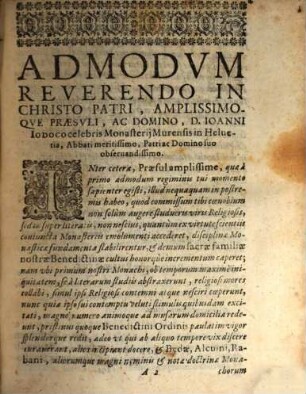 ADMODVM
REVERENDO IN
CHRISTO PATRI, AMPLISSIMO-
QVE PRÆSVLI, AC DOMINO, D. IOANNI
Iodoco celebris Monasterij Murensis in Helue-
tia, Abbati meritissimo, Patri ac Domino suo
obseruandissimo.
INter cetera, Præsul amplissime, quæ à
primo admodum regiminis tui momento
sapienter egisti, illud nequaquam in postre-
mis habeo, quod commissum tibi cœnobium
non solùm augere studueris viris Religiosis,
sed &
monastica fundamenta stabilirentur, & demum sacræ familiæ
nostræ Benedictinæ cultus honorque incrementum caperet;
nam vbi primùm nostri Monachi, ob temporum maximè ini-
quitatem, se à literarum studiis abstraxerunt, religiosi mores
collabi, simul ipsi Religiosi contemni
nunc quia ipso sui contemptu veluti stimulo quodam exci-
tati, magno numero animoque ad musarum domicilia rede-
unt, pristinus quoque Benedictini Ordinis paulatim vigor
splendorque redit, adeo vt qui ab aliquo tempore vix discere
curauerant, alios incipiant docere, & Bedæ, Alcuini, Ra-
bani, aliorumque magni nominis & notæ doctrinæ Mona-
A 2 chorum